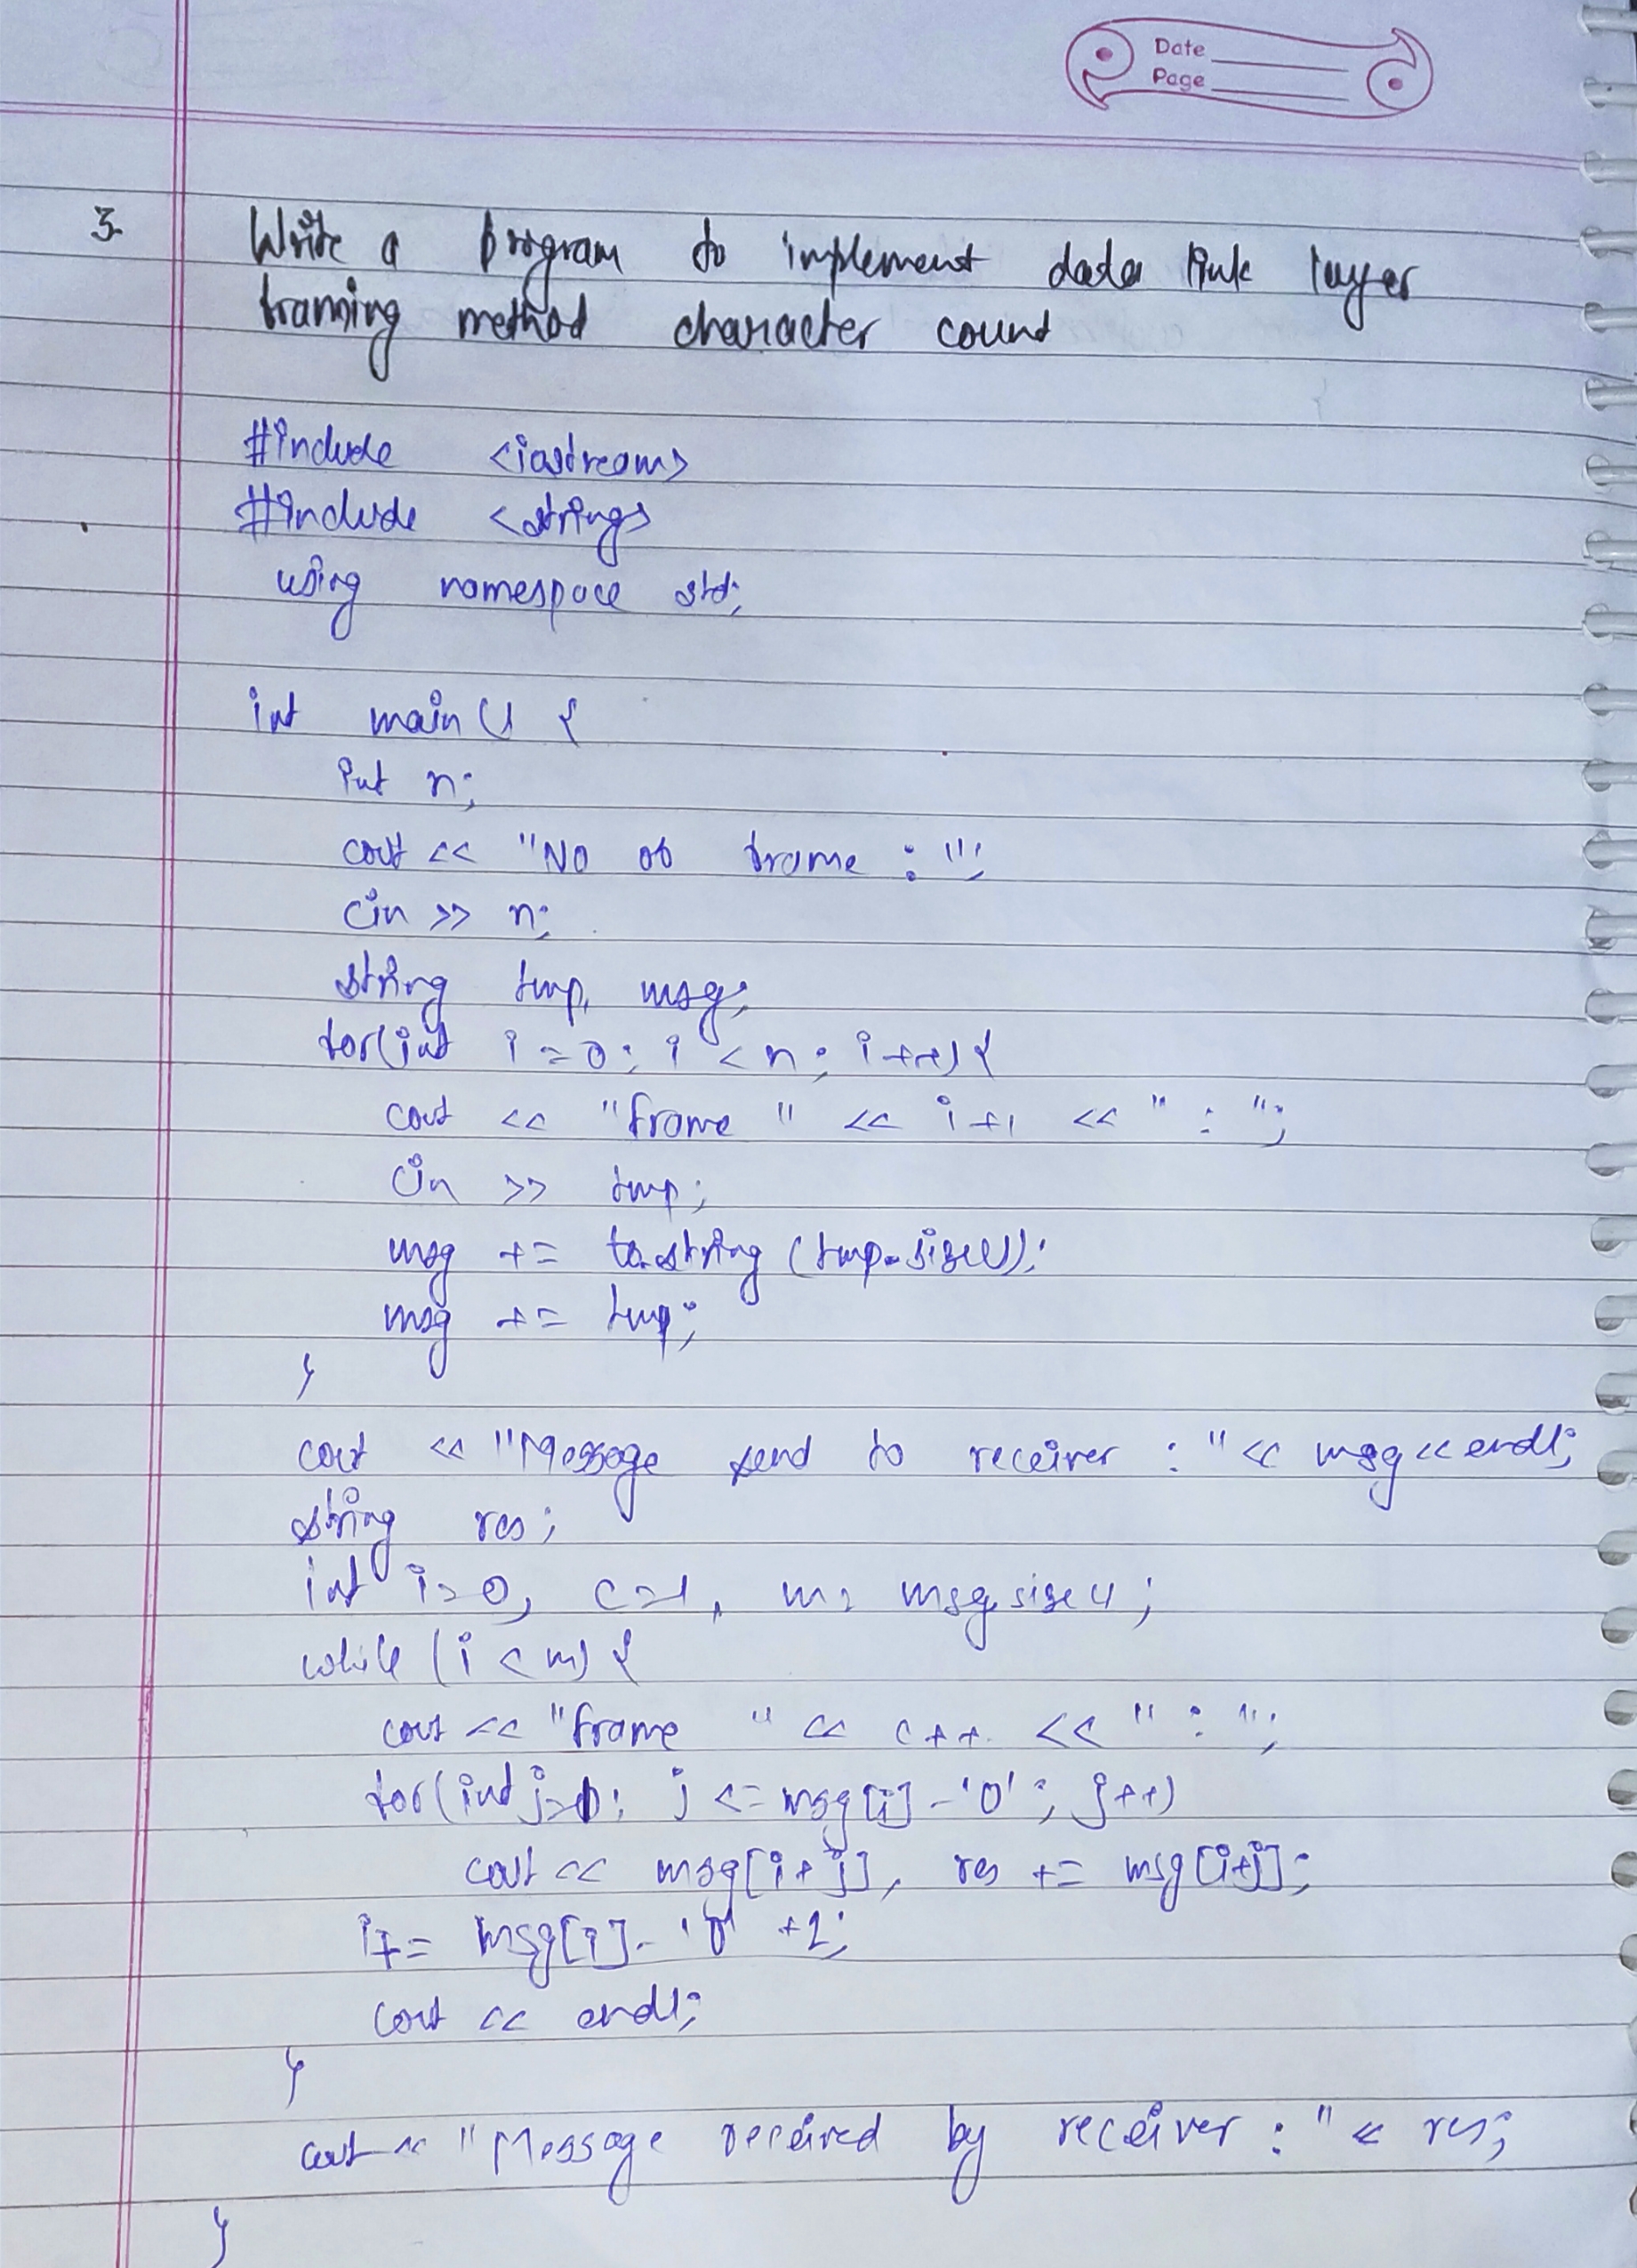 Date
Page
3.
Write a program to implement data link layer
framing method character count
#include <iostream>
#include <string>
using namespace std;
int main() {
int n;
cout << "No of frame : ";
cin >> n;
string tmp, msg;
for(int i = 0; i < n; i++) {
cout << "frame " << i+1 << " : ";
cin >> tmp;
msg += to_string (tmp.size());
msg += tmp;
}
cout << "Message send to receiver : " << msg << endl;
string res;
int i=0, c=1, m= msg.size();
while (i < m) {
cout << "frame " << c++ << " : ";
for(int j=1; j <= msg[i] - '0'; j++)
cout << msg[i+j], res += msg[i+j];
i += msg[i] - '0' +1;
cout << endl;
}
cout << "Message received by receiver : " << res;
}